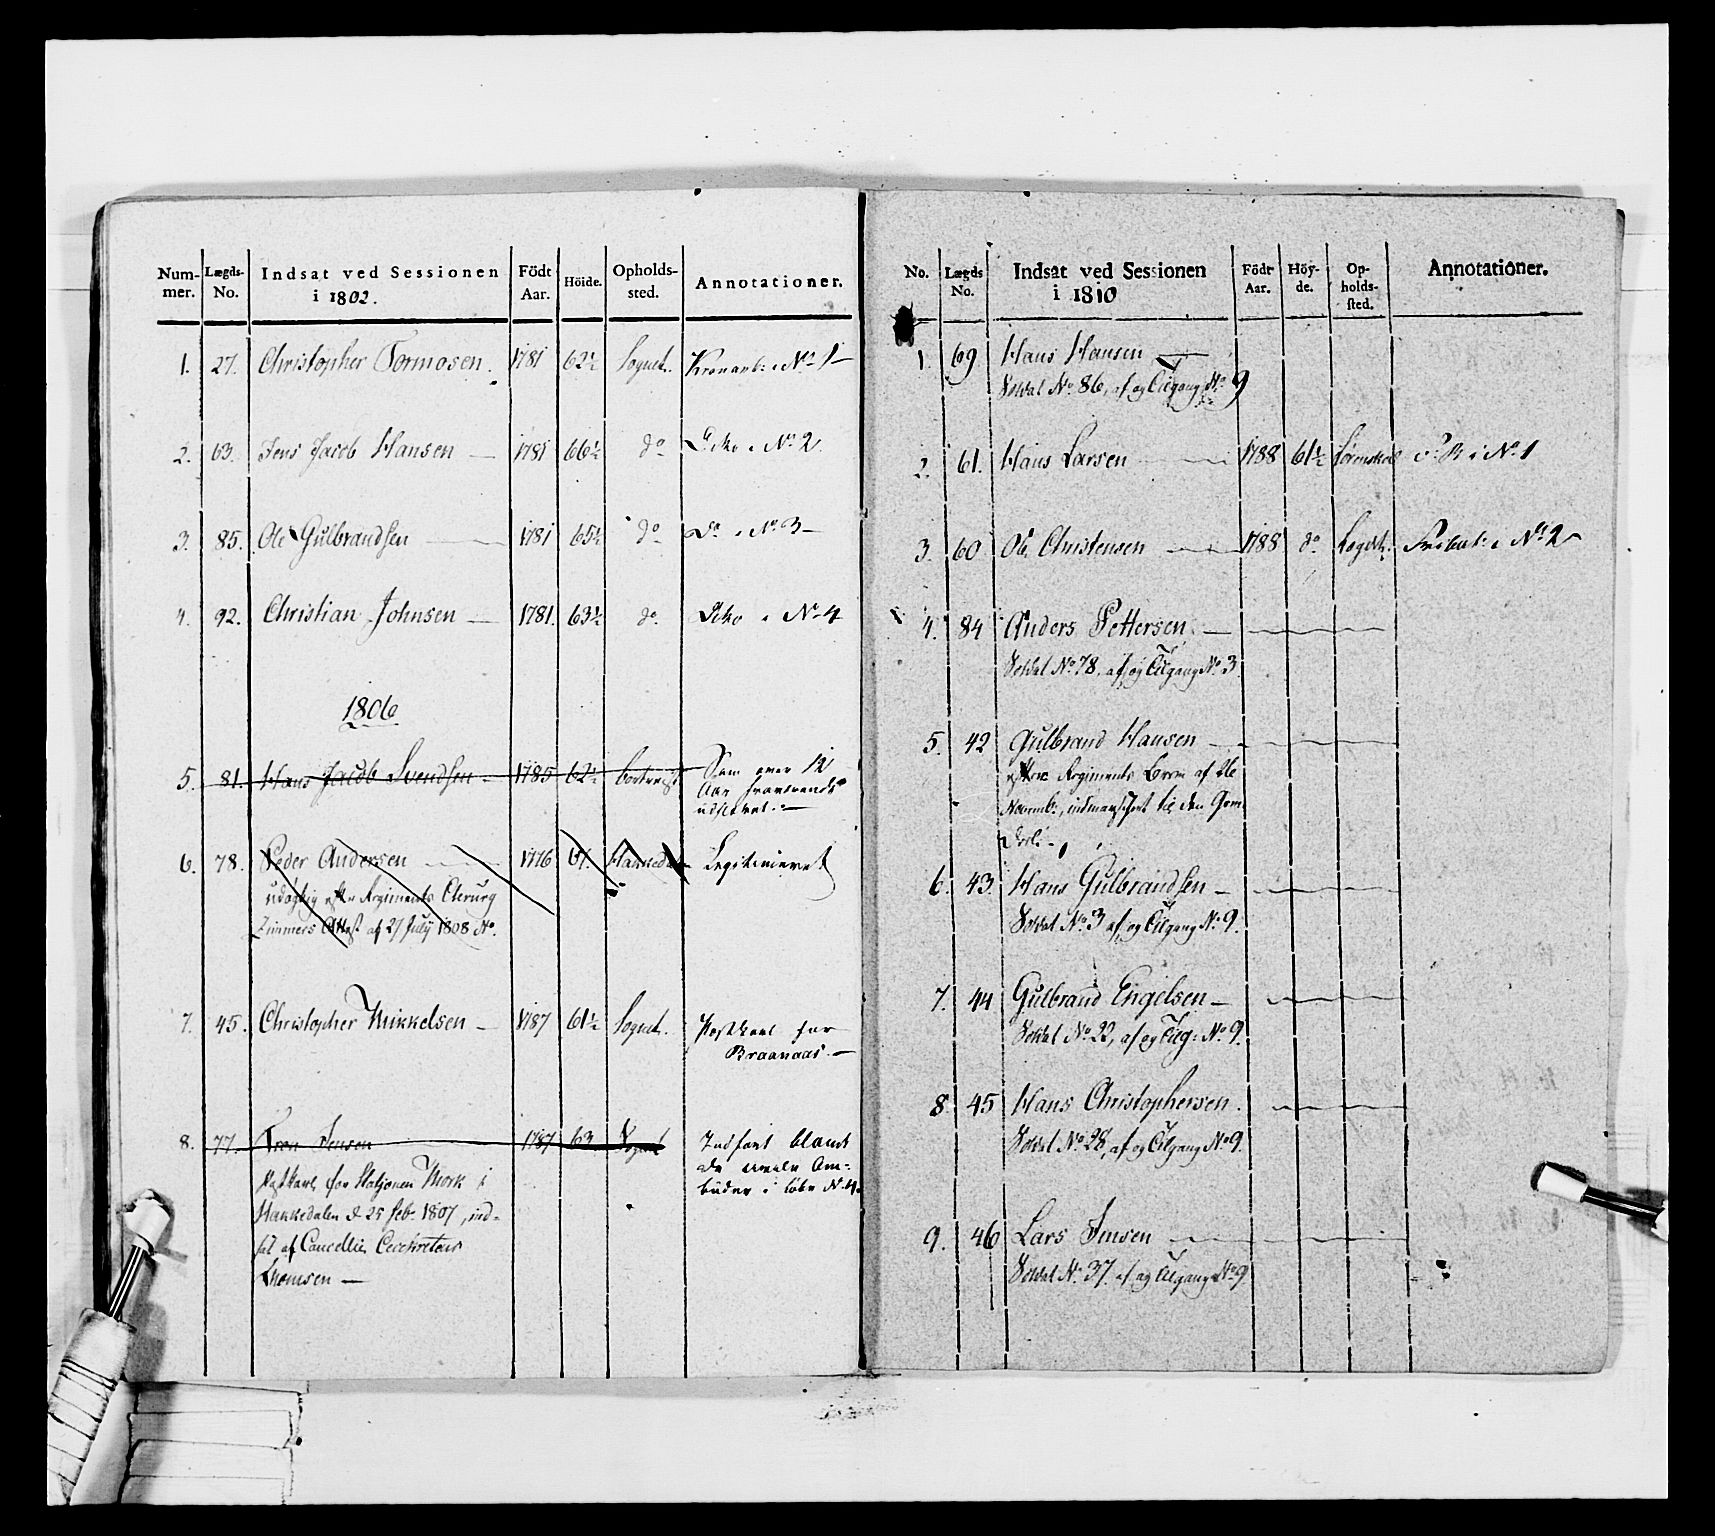 Num-
mer.
Lægds-
No.
Indsat ved Sessionen
i 1802.
Födt
Aar.
Höide.
Opholds-
sted.
Annotationer.
1. 27. Christopher Tormosen. 1781 62½ Sognet. No 1
2. 63. Jens Jacob Hansen 1781 66½ do No 2
3. 85. Ole Gulbrandsen 1781 65½ do Do i No 3
4. 92. Christian Johnsen 1781. 63½ do No 4
1806
5. 81. Hans Jacob Svendsen 1785 62½ bortreist Som over 12
Aar fraværende
udslettet.
6. 78. Peder Andersen 1776 61. Hakkedal Legitimeret
udögtig efter Regiments Cirurg
Zimmers Attest af 27 July 1808 No.
7. 45. Christopher Mikkelsen 1787 61½ Sognet. Postkarl for
Braanaas.
8. 77. Tron Jensen 1787 63 Sognet Indfört blant
de
i No 4.
Postkarl for Stasjonen Mork i
Hakkedalen d 25 feb. 1807, ind-
sat af Cancellie Secretair
Thomsen
No.
Lægds
No.
Indsat ved Sessionen
i 1810
Födt
Aar.
Höy-
de.
Op-
holds-
sted.
Annotationer.
1. 69 Hans Hansen
Soldat No. 86, af og Tilgang No. 9
2. 61. Hans Larsen 1788 61½ i No 1
3. 60 Ole Christensen 1788 do Lægdet. i No 2
4. 84 Anders Pettersen.
Soldat No 78, af og Tilgang No 3
5. 42 Gulbrand Hansen
efter Regiments Brev af 26
Novemb:,
6. 43. Hans Gulbrandsen
Soldat No. 3 af og Tilgang No. 9.
7. 44 Gulbrand Engelsen
Soldat No 22, af og Tilg: No. 9.
8. 45 Hans Christophersen.
Soldat No. 28, af og Tilgang No 9.
9. 46 Lars Jensen
Soldat No. 37. af og Tilgang No 9